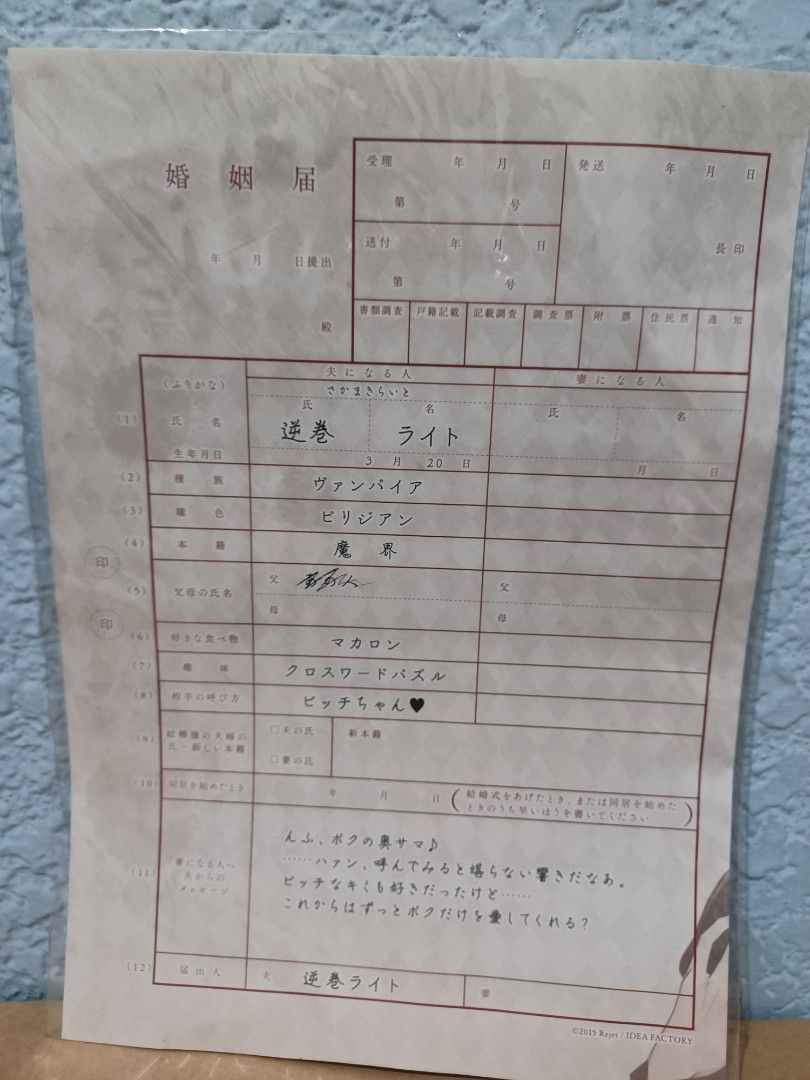 婚姻届
年 月 日提出
殿
受理 年 月 日
第 号
送付 年 月 日
第 号
発送 年 月 日
長印
書類調査 戸籍記載 記載調査 調査票 附票 住民票 通知
夫になる人 妻になる人
(ふりがな) さかまきらいと
(1) 氏名 氏 名 氏 名
逆巻 ライト
生年月日 3月20日 月 日
(2) 種族 ヴァンパイア
(3) 瞳色 ビリジアン
(4) 本籍 魔界
印
(5) 父母の氏名 父 父
母 母
印
(6) 好きな食べ物 マカロン
(7) 趣味 クロスワードパズル
(8) 相手の呼び方 ビッチちゃん♥
(9) 結婚後の夫婦の氏・新しい本籍 □夫の氏 □妻の氏 新本籍
(10) 同居を始めたとき 年 月 日 (結婚式をあげたとき、または同居を始めたときのうち早いほうを書いてください)
(11) 妻になる人へ夫からのメッセージ
んふ、ボクの奥サマ♪
……ハァン、呼んでみると堪らない響きだなあ。
ビッチなキミも好きだったけど……
これからはずっとボクだけを愛してくれる?
(12) 届出人 夫 逆巻ライト 妻
©2015 Rejet / IDEA FACTORY